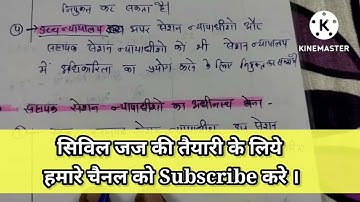 नियुक्त कर सकता है।
KINEMASTER
④ उच्च न्यायालय अपर सेशन न्यायाधीशो और
सहायक सेशन न्यायाधीशो को भी सेशन न्यायालय
में अधिकारिता का प्रयोग करने के लिए नियुक्त कर सकता है
सहायक सेशन न्यायाधीशो का अधीनस्थ होना
सेशन
सिविल जज की तैयारी के लिये
हमारे चैनल को Subscribe करे ।